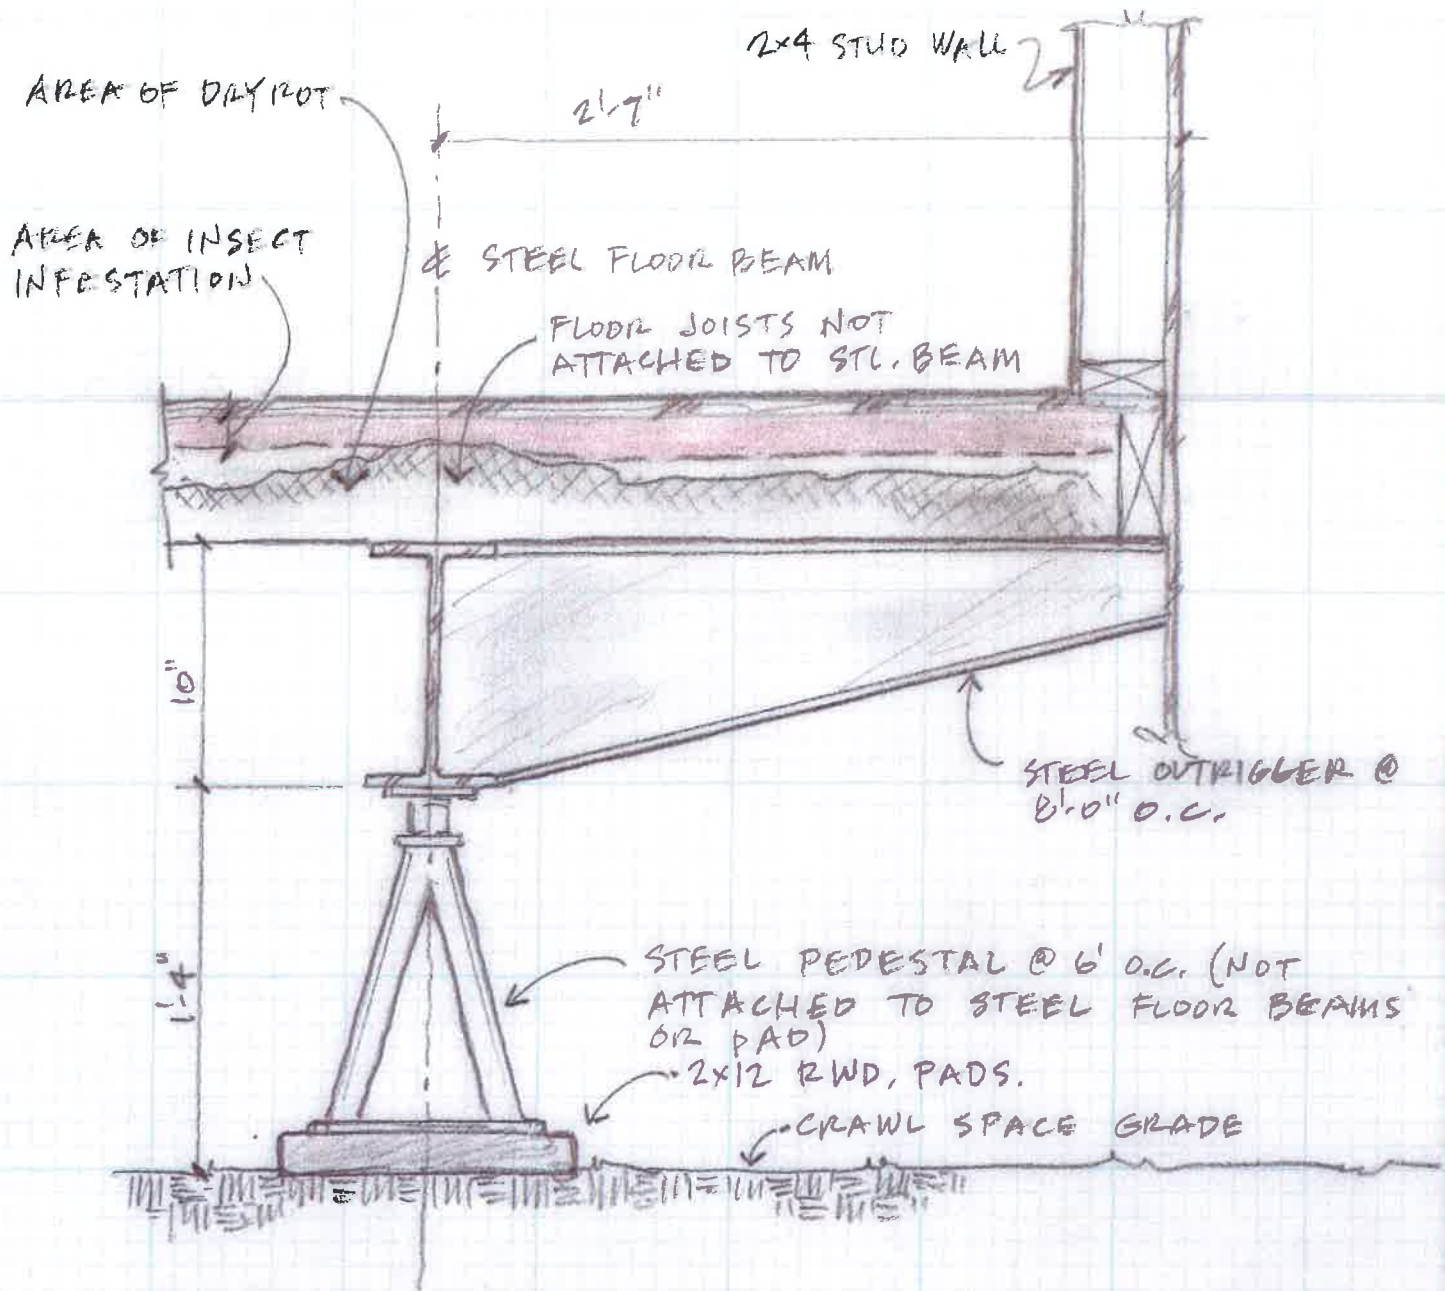 2x4 STUD WALL
AREA OF DRY ROT
2'-7"
AREA OF INSECT
INFESTATION
℄ STEEL FLOOR BEAM
FLOOR JOISTS NOT
ATTACHED TO STL. BEAM
10"
STEEL OUTRIGGER @
8'-0" O.C.
1'-4"
STEEL PEDESTAL @ 6' O.C. (NOT
ATTACHED TO STEEL FLOOR BEAMS
OR PAD)
2x12 RWD. PADS.
CRAWL SPACE GRADE